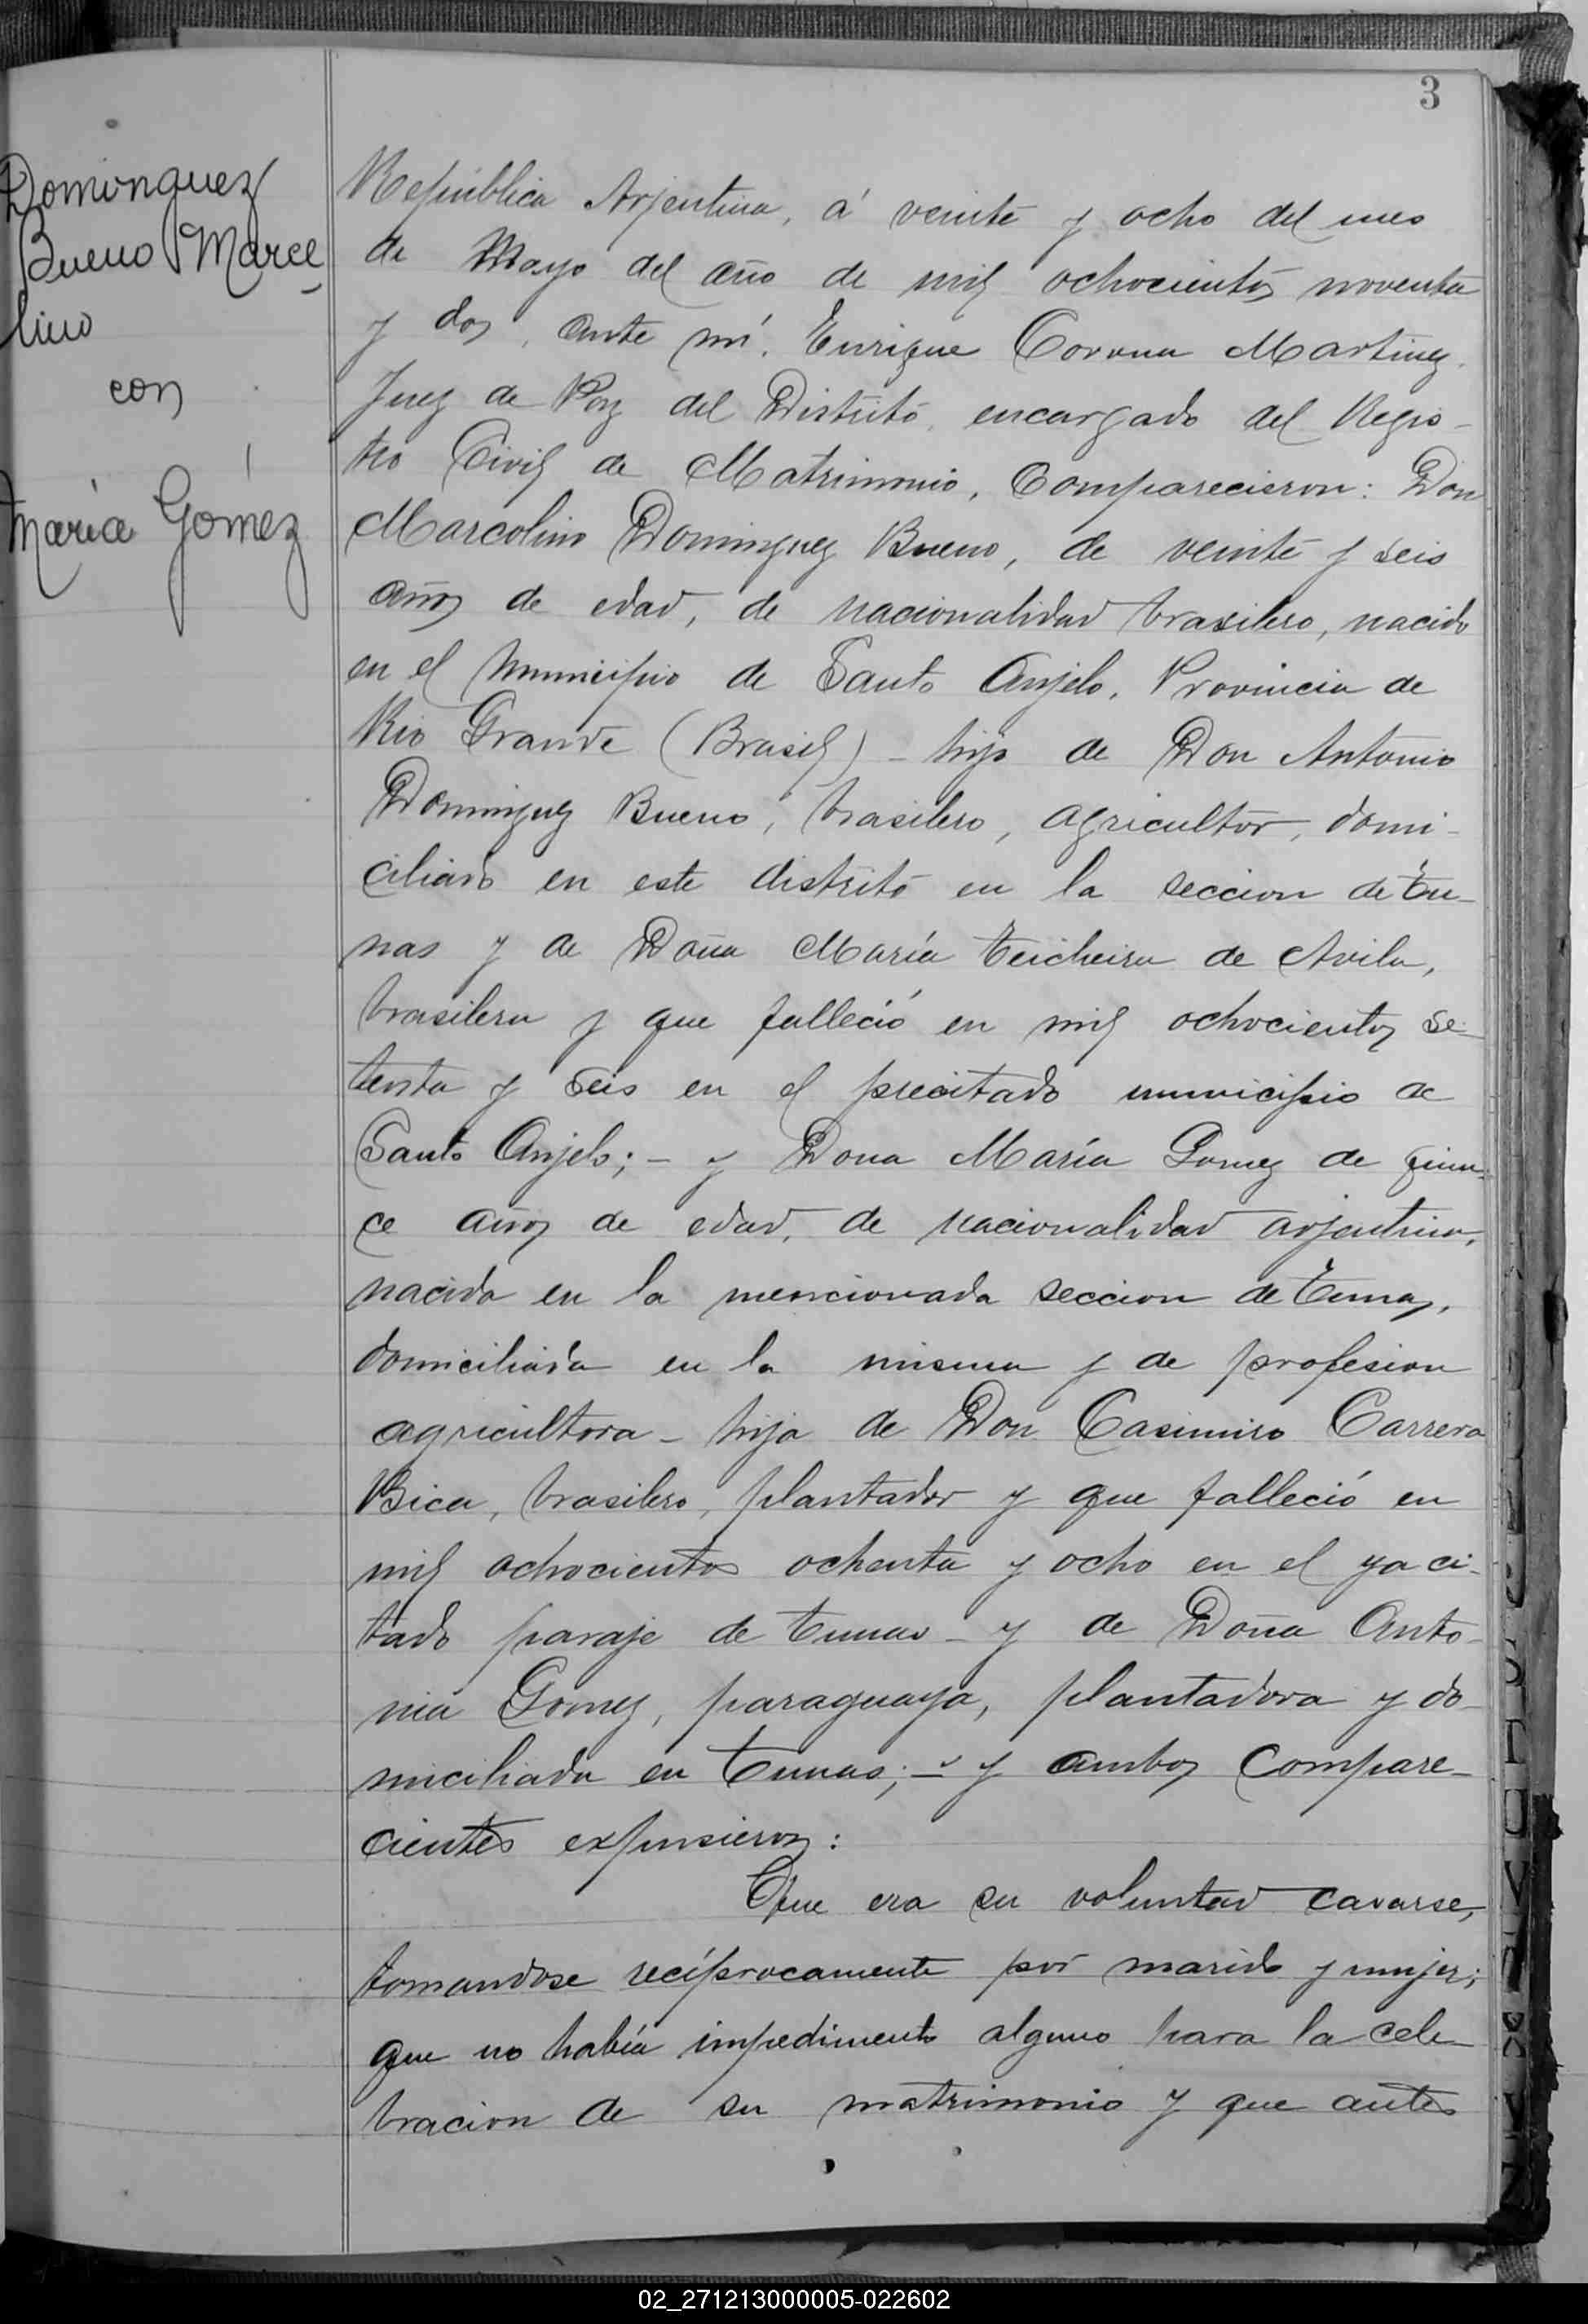 3
Dominguez
Bueno Marce
lino
con
María Gómez
República Arjentina, á veinte y ocho del mes
de Mayo del año de mil ochocientos noventa
y dos, ante mí, Enrique Corona Martinez,
Juez de Paz del Distrito, encargado del Regis-
tro Civil de Matrimonio, Comparecieron: Don
Marcolino Dominguez Bueno, de veinte y seis
años de edad, de nacionalidad brasilero, nacido
en el Municipio de Santo Anjelo, Provincia de
Rio Grande (Brasil) - hijo de Don Antonio
Dominguez Bueno, brasilero, agricultor, domi-
ciliado en este distrito en la seccion de Tu-
nas y de Doña María Teicheira de Avila,
brasilera y que falleció en mil ochocientos se-
tenta y seis en el precitado municipio de
Santo Anjelo; - y Dona María Gomez de quin-
ce años de edad, de nacionalidad arjentina,
nacida en la mencionada seccion de Tunas,
domiciliada en la misma y de profesion
agricultora - hija de Don Casimiro Carrera
Bica, brasilero, plantador y que falleció en
mil ochocientos ochenta y ocho en el ya ci-
tado paraje de Tunas - y de Doña Anto-
nia Gomez, paraguaya, plantadora y do-
miciliada en Tunas; - y ambos Compare-
cientes expusieron:
Que era su voluntad casarse,
tomandose recíprocamente por marido y mujer;
que no había impedimento alguno para la cele-
bracion de su matrimonio y que antes
02_271213000005-022602